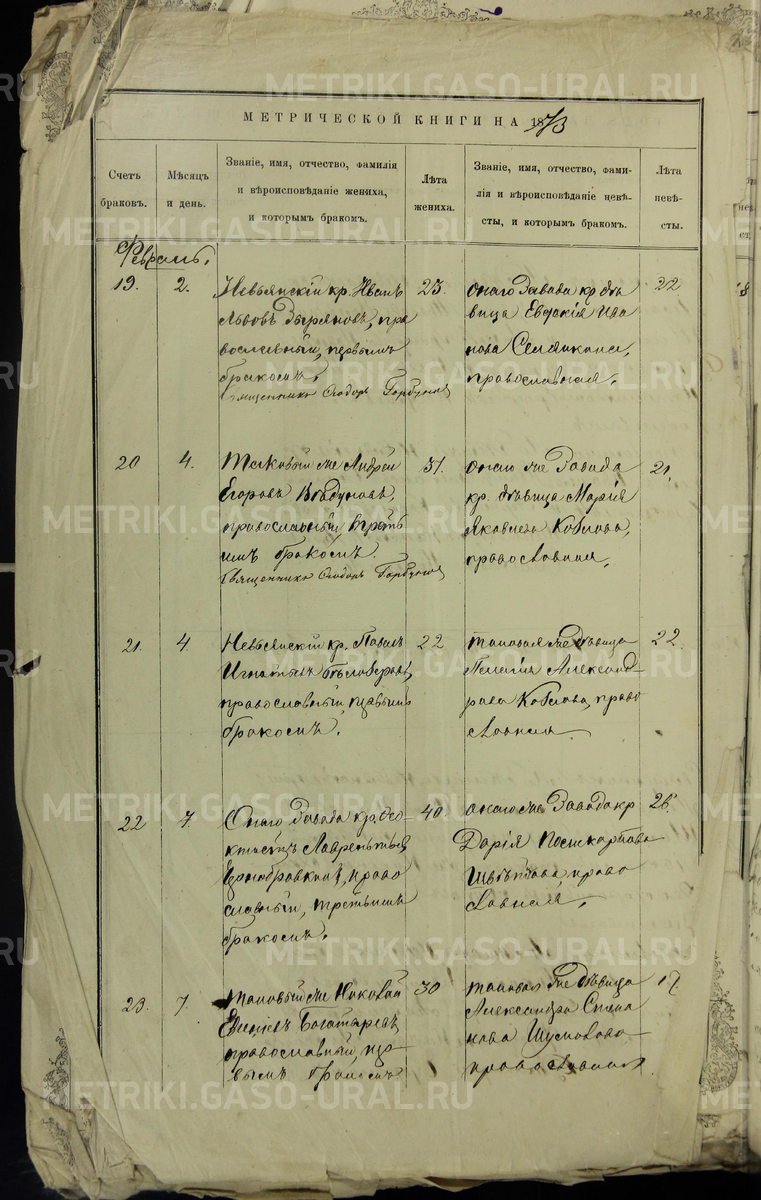 МЕТРИЧЕСКОЙ КНИГИ НА 1873
Счетъ браковъ.
Мѣсяцъ и день.
Званіе, имя, отчество, фамилія
и вѣроисповѣданіе жениха,
и которымъ бракомъ.
Лѣта жениха.
Званіе, имя, отчество, фами-
лія и вѣроисповѣданіе невѣ-
сты, и которымъ бракомъ.
Лѣта невѣ-
сты.
Февраль.
19. 2.
Невьянскій кр. Иванъ
Львовъ Зыряновъ, пра
вославный, первымъ
бракомъ.
Священникъ Ѳеодоръ Горбуновъ
23.
онаго Завода кр. дѣ
вица Евдокія Ива
нова
православная.
22
20 4.
Таковый же Андрей
Егоровъ
православный,
имъ бракомъ.
Священникъ Ѳеодоръ Горбуновъ
31.
онаго же Завода
кр. дѣвица Марія
Яковлева Кобялова,
православная.
21.
21. 4
Невьянскій кр. Павелъ
Игнатьевъ Бѣлобородовъ,
православный, первымъ
бракомъ.
22
таковая же дѣвица
Пелагія Александ-
рова право
славная
22.
22 7.
Онаго Завода кр. Ѳео
ктистъ Лаврентьевъ
Чернобровкинъ, право
славный, третьимъ
бракомъ.
40.
онаго же Завода кр
Дарія Поликарпова
право
славная,
26.
23. 7
Таковый же Николай
Богатыревъ,
православный, пер
вымъ бракомъ
30
таковая же дѣвица
Александра Степа
нова
православная
METRIKI.GASO-URAL.RU